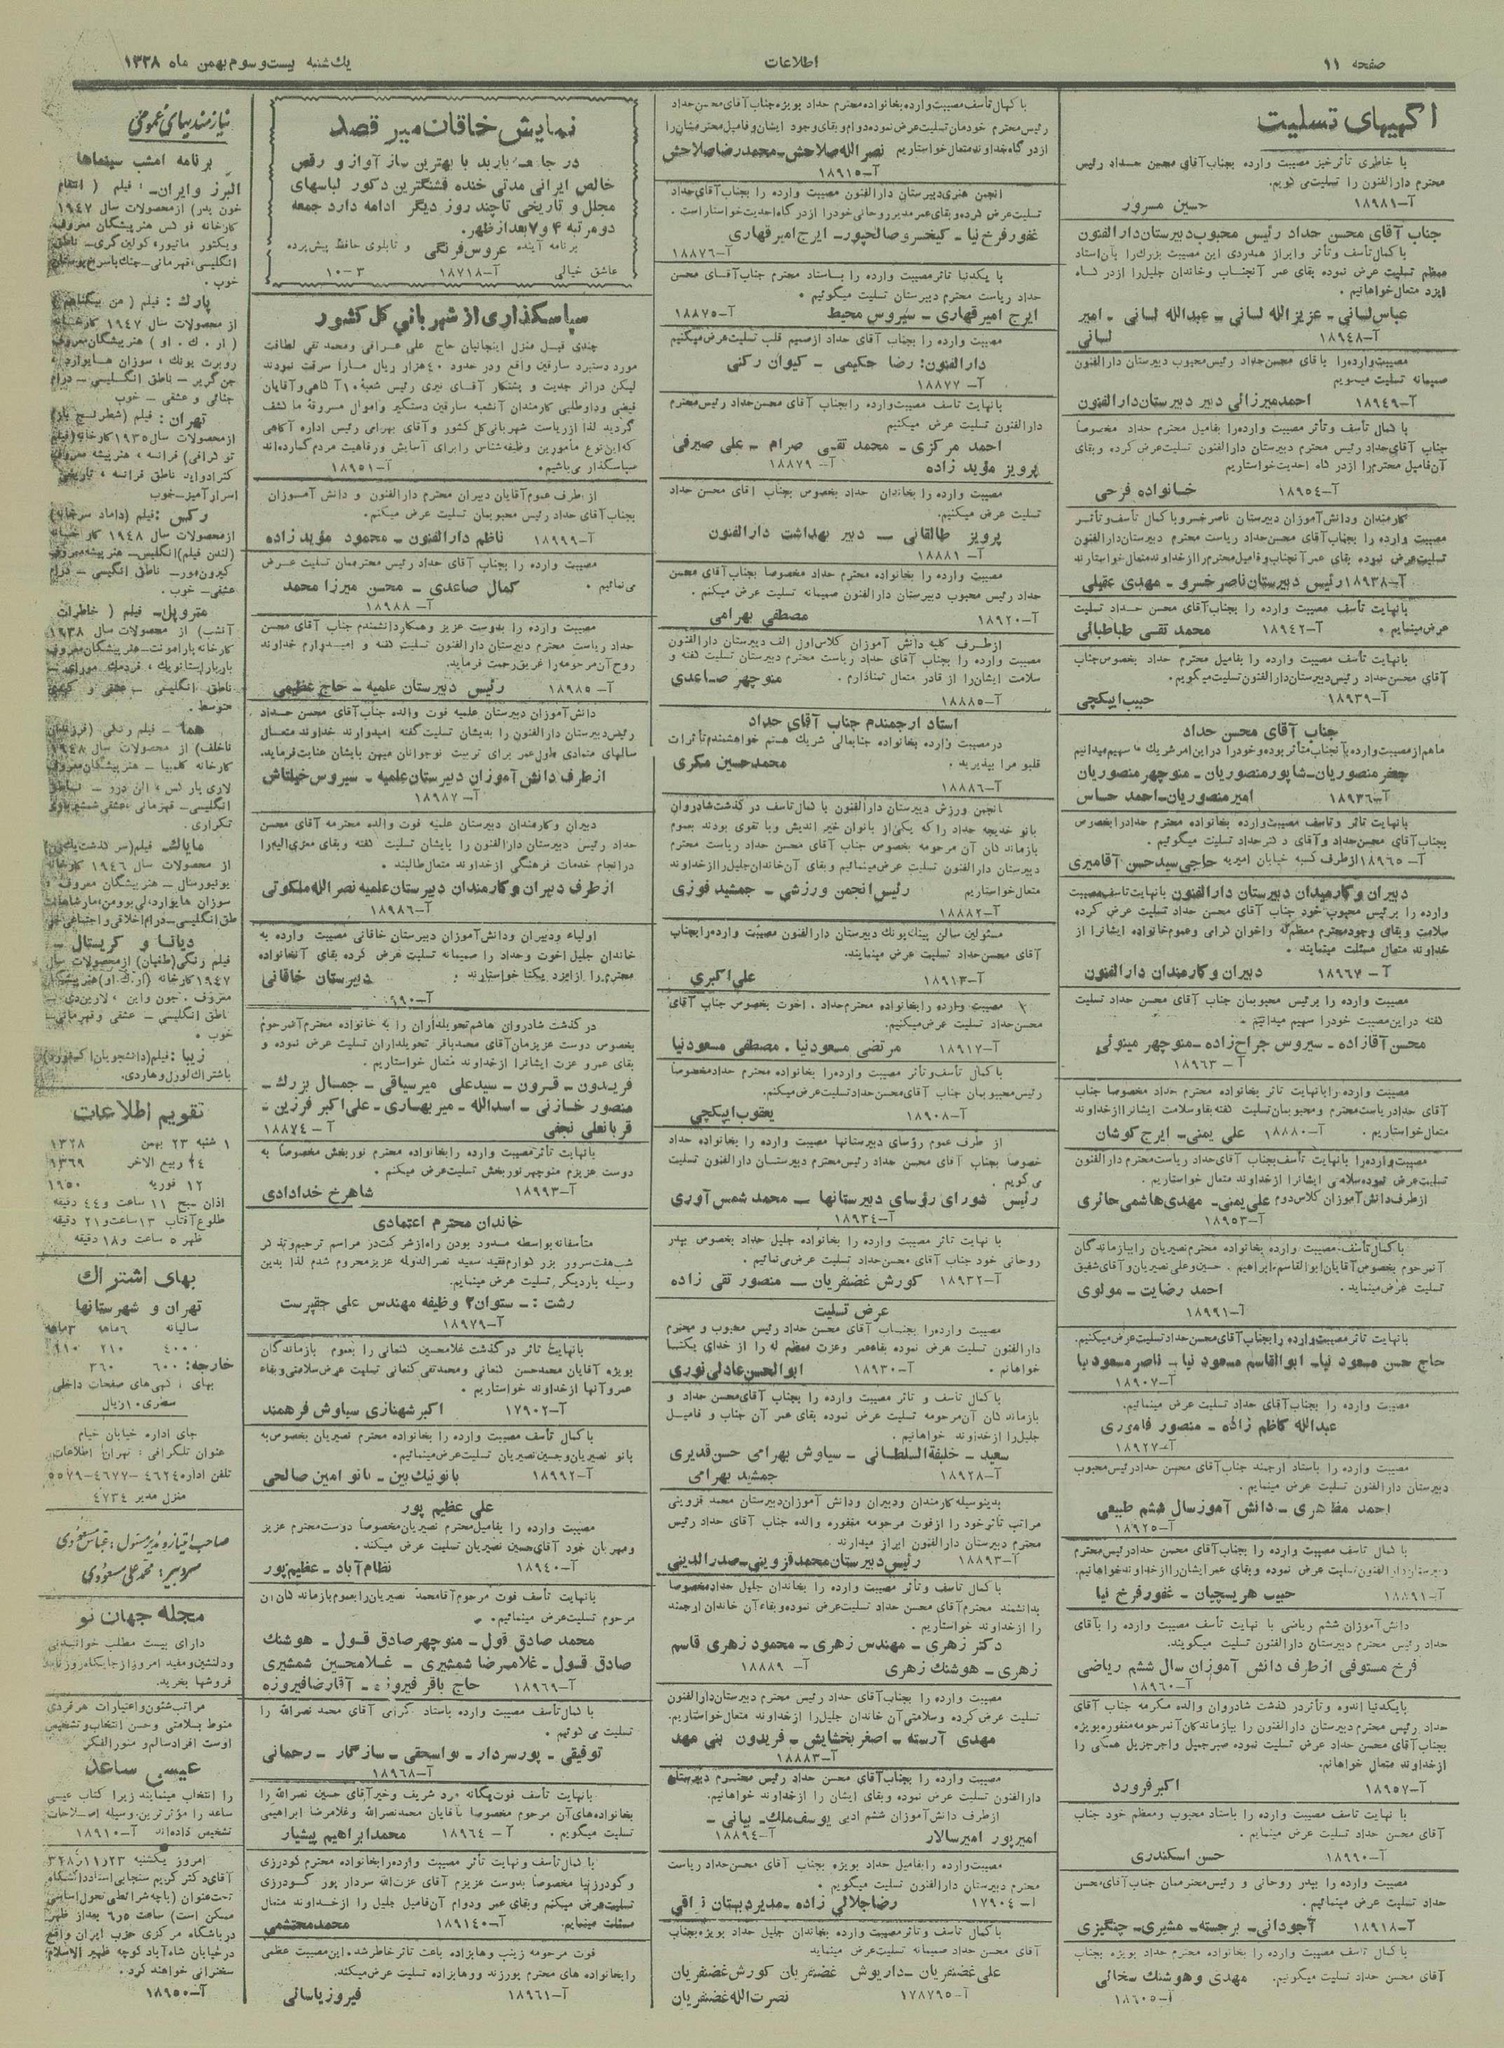 صفحه ۱۱
اطلاعات
یک شنبه بیست و سوم بهمن ماه ۱۳۲۸
آگهیهای تسلیت
با خاطری تأثر خیز مصیبت وارده بجناب آقای محسن حداد رئیس
محترم دارالفنون را تسلیت می گویم.
آ-۱۸۹۸۱ حسین مسرور
جناب آقای محسن حداد رئیس محبوب دبیرستان دارالفنون
با کمال تأسف و تأثر و ابراز همدردی این مصیبت بزرگ را بآن استاد
معظم تسلیت عرض نموده بقای عمر آنجناب و خاندان جلیل را از درگاه
ایزد متعال خواهانیم.
عباس لسانی - عزیزالله لسانی - عبدالله لسانی - امیر
لسانی آ-۱۸۹۴۸
مصیبت وارده را بآقای محسن حداد رئیس محبوب دبیرستان دارالفنون
صمیمانه تسلیت میگویم
آ-۱۸۹۴۹ احمد میرزائی دبیر دبیرستان دارالفنون
با کمال تأسف و تأثر مصیبت وارده را بفامیل محترم حداد مخصوصاً
جناب آقای حداد رئیس محترم دبیرستان دارالفنون تسلیت عرض کرده و بقای
آن فامیل محترم را از درگاه احدیت خواستاریم
آ-۱۸۹۵۴ خانواده فرحی
کارمندان و دانش آموزان دبیرستان ناصر خسرو با کمال تأسف و تأثر
مصیبت وارده را بجناب آقای محسن حداد ریاست محترم دبیرستان دارالفنون
تسلیت عرض نموده بقای عمر آنجناب و فامیل محترم را از خداوند متعال خواستارند
آ-۱۸۹۳۸ رئیس دبیرستان ناصر خسرو - مهدی عقیلی
با نهایت تأسف مصیبت وارده را بجناب آقای محسن حداد تسلیت
عرض مینمایم. آ-۱۸۹۴۲ محمد تقی طباطبائی
با نهایت تأسف مصیبت وارده را بفامیل محترم حداد بخصوص جناب
آقای محسن حداد رئیس دبیرستان دارالفنون تسلیت میگویم.
آ-۱۸۹۳۹ حبیب ایپکچی
جناب آقای محسن حداد
ما هم از مصیبت وارده بآنجناب متأثر بوده و خود را در این امر شریک و سهیم میدانیم
جعفر منصوریان - شاپور منصوریان - منوچهر منصوریان
آ-۱۸۹۳۶ امیر منصوریان - احمد حساس
با نهایت تأثر و تأسف مصیبت وارده بخانواده محترم حداد را بخصوص
بجناب آقای محسن حداد و آقای دکتر حداد تسلیت میگوئیم.
آ-۱۸۹۶۵ از طرف کسبه خیابان امیریه حاجی سید حسن آقامیری
دبیران و کارمندان دبیرستان دارالفنون با نهایت تأسف مصیبت
وارده را برئیس محبوب خود جناب آقای محسن حداد تسلیت عرض کرده
سلامت و بقای وجود محترم معظم له و اخوان گرامی و عموم خانواده ایشان را از
خداوند متعال مسئلت مینمایند.
آ-۱۸۹۶۷ دبیران و کارمندان دارالفنون
مصیبت وارده را برئیس محبوبمان جناب آقای محسن حداد تسلیت
گفته در این مصیبت خود را سهیم میدانیم.
محسن آقازاده - سیروس جراح زاده - منوچهر مینوئی
آ-۱۸۹۶۳
مصیبت وارده را با نهایت تأثر بخانواده محترم حداد مخصوصاً جناب
آقای حداد ریاست محترم و محبوبمان تسلیت گفته بقا و سلامت ایشان را از خداوند
متعال خواستاریم. آ-۱۸۸۸۰ علی یمنی - ایرج کوشان
مصیبت وارده را با نهایت تأسف بجناب آقای حداد ریاست محترم دارالفنون
تسلیت عرض نموده سلامتی ایشان را از خداوند متعال خواستاریم.
از طرف دانش آموزان کلاس دوم علی یمنی - مهدی هاشمی حائری
آ-۱۸۹۵۳
با کمال تأسف مصیبت وارده بخانواده محترم نصیریان را ببازماندگان
آنمرحوم بخصوص آقایان ابوالقاسم، ابراهیم، حسین و علی نصیریان و آقای شفیق
تسلیت عرض مینماید. احمد رضایت - مولوی
آ-۱۸۹۹۱
با نهایت تأثر مصیبت وارده را بجناب آقای محسن حداد تسلیت عرض میکنیم.
حاج حسن مسعود نیا - ابوالقاسم مسعود نیا - ناصر مسعود نیا
آ-۱۸۹۰۷
مصیبت وارده را بجناب آقای حداد تسلیت عرض مینمائیم.
عبدالله کاظم زاده - منصور قاموری
آ-۱۸۹۲۷
مصیبت وارده را باستاد ارجمند جناب آقای محسن حداد رئیس محبوب
دبیرستان دارالفنون تسلیت عرض مینمایم.
احمد مظاهری - دانش آموز سال ششم طبیعی
آ-۱۸۹۲۵
با کمال تأسف مصیبت وارده را بجناب آقای محسن حداد رئیس محترم
دبیرستان دارالفنون تسلیت عرض نموده و بقای عمر ایشان را از خداوند خواهانیم.
آ-۱۸۸۹۱ حبیب هریسچیان - غفور فرخ نیا
دانش آموزان ششم ریاضی با نهایت تأسف مصیبت وارده را بآقای
حداد رئیس محترم دبیرستان دارالفنون تسلیت میگویند.
فرخ مستوفی از طرف دانش آموزان سال ششم ریاضی
آ-۱۸۹۶۰
با یکدنیا اندوه و تأثر در گذشت شادروان والده مکرمه جناب آقای
حداد رئیس محترم دبیرستان دارالفنون را ببازماندگان آنمرحومه مغفوره بویژه
بجناب آقای محسن حداد عرض تسلیت نموده صبر جمیل و اجر جزیل همگی را
از خداوند متعال خواهانم.
آ-۱۸۹۵۷ اکبر فرورد
با نهایت تأسف مصیبت وارده را باستاد محبوب و معظم خود جناب
آقای محسن حداد تسلیت عرض مینمایم.
آ-۱۸۹۹۰ حسن اسکندری
مصیبت وارده را بپدر روحانی و رئیس محترممان جناب آقای محسن
حداد تسلیت عرض مینمائیم.
آ-۱۸۹۱۸ آجودانی - برجسته - مشیری - چنگیزی
با کمال تأسف مصیبت وارده را بخانواده محترم حداد بویژه بجناب
آقای محسن حداد تسلیت میگوئیم. مهدی و هوشنگ سخائی
آ-۱۸۶۰۵
با کمال تأسف مصیبت وارده بخانواده محترم حداد بویژه جناب آقای محسن حداد
رئیس محترم خودمان تسلیت عرض نموده دوام و بقای وجود ایشان و فامیل محترمشان را
از درگاه خداوند متعال خواستاریم نصرالله صلاحش - محمد رضا صلاحش
آ-۱۸۹۱۵
انجمن هنری دبیرستان دارالفنون مصیبت وارده را بجناب آقای حداد
تسلیت عرض کرده و بقای عمر مدیر روحانی خود را از درگاه احدیت خواستار است.
غفور فرخ نیا - کیخسرو صالحپور - ایرج امیر قهاری
آ-۱۸۸۷۶
با یکدنیا تأثر مصیبت وارده را باستاد محترم جناب آقای محسن
حداد ریاست محترم دبیرستان تسلیت میگوئیم.
ایرج امیر قهاری - سیروس محیط آ-۱۸۸۷۵
مصیبت وارده را بجناب آقای حداد از صمیم قلب تسلیت عرض میکنیم
دارالفنون: رضا حکیمی - کیوان رکنی
آ-۱۸۸۷۷
با نهایت تأسف مصیبت وارده را بجناب آقای محسن حداد رئیس محترم
دارالفنون تسلیت عرض میکنیم
احمد مرکزی - محمد تقی صرام - علی صیرفی
پرویز مؤید زاده آ-۱۸۸۷۹
مصیبت وارده را بخاندان حداد بخصوص بجناب آقای محسن حداد
تسلیت عرض میکنیم.
پرویز طالقانی - دبیر بهداشت دارالفنون
آ-۱۸۸۸۱
مصیبت وارده را بخانواده محترم حداد مخصوصاً بجناب آقای محسن
حداد رئیس محبوب دبیرستان دارالفنون صمیمانه تسلیت عرض میکنم.
آ-۱۸۹۲۰ مصطفی بهرامی
از طرف کلیه دانش آموزان کلاس اول الف دبیرستان دارالفنون
مصیبت وارده را بجناب آقای حداد ریاست محترم دبیرستان تسلیت گفته و
سلامت ایشان را از قادر متعال تمنا دارم. منوچهر صاعدی
آ-۱۸۸۸۵
استاد ارجمندم جناب آقای حداد
در مصیبت وارده بخانواده جنابعالی شریک هستم خواهشمندم تأثرات
قلبی مرا بپذیرید. محمد حسین مکری
آ-۱۸۸۸۶
انجمن ورزش دبیرستان دارالفنون با کمال تأسف درگذشت شادروان
بانو خدیجه حداد را که یکی از بانوان خیر اندیش و با تقوی بودند بعموم
بازماندگان آن مرحومه بخصوص جناب آقای محسن حداد ریاست محترم
دبیرستان دارالفنون تسلیت عرض مینمائیم و بقای آن خاندان جلیل را از خداوند
متعال خواستاریم رئیس انجمن ورزشی - جمشید فوزی
آ-۱۸۸۸۲
مسئولین سالن پینگ پونگ دبیرستان دارالفنون مصیبت وارده را بجناب
آقای محسن حداد تسلیت عرض مینمایند.
آ-۱۸۹۱۳ علی اکبری
مصیبت وارده را بخانواده محترم حداد، اخوت بخصوص جناب آقای
محسن حداد تسلیت عرض میکنیم.
آ-۱۸۹۱۷ مرتضی مسعود نیا، مصطفی مسعود نیا
با کمال تأسف و تأثر مصیبت وارده را بخانواده محترم حداد مخصوصاً
رئیس محبوبمان جناب آقای محسن حداد تسلیت عرض میکنم.
آ-۱۸۹۰۸ یعقوب ایپکچی
از طرف عموم رؤسای دبیرستانها مصیبت وارده را بخانواده حداد
خصوصاً بجناب آقای محسن حداد رئیس محترم دبیرستان دارالفنون تسلیت
می گویم.
رئیس شورای رؤسای دبیرستانها - محمد شمس آوری
آ-۱۸۹۳۴
با نهایت تأثر مصیبت وارده را بخانواده جلیل حداد بخصوص بپدر
روحانی خود جناب آقای محسن حداد تسلیت عرض می نمائیم.
آ-۱۸۹۳۲ کورش غضنفریان - منصور تقی زاده
عرض تسلیت
مصیبت وارده را بجناب آقای محسن حداد رئیس محبوب و محترم
دارالفنون تسلیت عرض نموده بقاء عمر و عزت معظم له را از خدای یکتا
خواهانم. آ-۱۸۹۳۰ ابوالحسن عادلی نوری
با کمال تأسف و تأثر مصیبت وارده را بجناب آقای محسن حداد و
بازماندگان آن مرحومه تسلیت عرض نموده بقای عمر آن جناب و فامیل
جلیل را از خداوند خواهانیم.
سعید - خلیفة السلطانی - سیاوش بهرامی حسن قدیری
آ-۱۸۹۲۸ جمشید بهرامی
بدینوسیله کارمندان و دبیران و دانش آموزان دبیرستان محمد قزوینی
مراتب تأثر خود را از فوت مرحومه مغفوره والده جناب آقای حداد رئیس
محترم دبیرستان دارالفنون ابراز میدارند
آ-۱۸۸۹۳ رئیس دبیرستان محمد قزوینی - صدرالدینی
با کمال تأسف و تأثر مصیبت وارده را بخاندان جلیل حداد مخصوصاً
بدانشمند محترم آقای محسن حداد تسلیت عرض نموده و بقاء آن خاندان ارجمند
را از خداوند خواستاریم.
دکتر زهری - مهندس زهری - محمود زهری قاسم
زهری - هوشنگ زهری آ-۱۸۸۸۹
مصیبت وارده را بجناب آقای حداد رئیس محترم دبیرستان دارالفنون
تسلیت عرض کرده و سلامتی آن خاندان جلیل را از خداوند متعال خواستاریم.
مهدی آرسته - اصغر بخشایش - فریدون بنی مهد
آ-۱۸۸۸۳
مصیبت وارده را بجناب آقای محسن حداد رئیس محترم دبیرستان
دارالفنون تسلیت عرض نموده و بقای ایشان را از خداوند خواهانیم.
از طرف دانش آموزان ششم ادبی یوسف ملک - بیانی -
امیر پور امیر سالار آ-۱۸۸۹۴
مصیبت وارده را بفامیل حداد بویژه بجناب آقای محسن حداد ریاست
محترم دبیرستان دارالفنون تسلیت میگویم.
آ-۱۷۹۰۴ رضا جلالی زاده - مدیر دبستان نراقی
با کمال تأسف و تأثر مصیبت وارده بخاندان جلیل حداد بویژه بجناب
آقای محسن حداد صمیمانه تسلیت عرض مینماید
علی غضنفریان - داریوش غضنفریان کورش غضنفریان
آ-۱۷۸۷۹۵ نصرت الله غضنفریان
نمایش خاقان میر قصد
در جامعه باربد با بهترین ساز آواز و رقص
خالص ایرانی مدتی خنده قشنگترین دکور لباسهای
مجلل و تاریخی تا چند روز دیگر ادامه دارد جمعه
دو مرتبه ۴ و ۷ بعد از ظهر.
برنامه آینده عروس فرنگی و تابلوی حافظ پیش پرده
عاشق خیالی آ-۱۸۷۱۸ ۳-۱۰
سپاسگذاری از شهربانی کل کشور
چندی قبل منزل اینجانبان حاج علی عراقی و محمد تقی لطافت
مورد دستبرد سارقین واقع و در حدود ۴۰ هزار ریال ما را سرقت نمودند
لیکن در اثر جدیت و پشتکار آقای نیری رئیس شعبه ۱۰ آگاهی و آقایان
فیضی و داوطلبی کارمندان آنشعبه سارقین دستگیر و اموال مسروقه ما کشف
گردید لذا از ریاست شهربانی کل کشور و آقای بهرامی رئیس اداره آگاهی
که این نوع مأمورین وظیفه شناس را برای آسایش و رفاهیت مردم گمارده اند
سپاسگذار می باشیم. آ-۱۸۹۵۱
از طرف عموم آقایان دبیران محترم دارالفنون و دانش آموزان
بجناب آقای حداد رئیس محبوبمان تسلیت عرض میکنم.
آ-۱۸۹۹۹ ناظم دارالفنون - محمود مؤید زاده
مصیبت وارده را بجناب آقای حداد رئیس محترممان تسلیت عرض
می نمائیم. کمال صاعدی - محسن میرزا محمد
آ-۱۸۹۸۸
مصیبت وارده را بدوست عزیز و همکار دانشمندم جناب آقای محسن
حداد ریاست محترم دبیرستان دارالفنون تسلیت گفته و امیدوارم خداوند
روح آن مرحومه را غریق رحمت فرماید.
آ-۱۸۹۸۵ رئیس دبیرستان علمیه - حاج عظیمی
دانش آموزان دبیرستان علمیه فوت والده جناب آقای محسن حداد
رئیس دبیرستان دارالفنون را بدیشان تسلیت گفته امیدوارند خداوند متعال
سالهای متمادی طول عمر برای تربیت نوجوانان میهن بایشان عنایت فرماید.
از طرف دانش آموزان دبیرستان علمیه - سیروس خیلتاش
آ-۱۸۹۸۷
دبیران و کارمندان دبیرستان علمیه فوت والده محترمه آقای محسن
حداد رئیس دبیرستان دارالفنون را بایشان تسلیت گفته و بقای معزی الیه را
در انجام خدمات فرهنگی از خداوند متعال طالبند.
از طرف دبیران و کارمندان دبیرستان علمیه نصرالله ملکوتی
آ-۱۸۹۸۶
اولیاء و دبیران و دانش آموزان دبیرستان خاقانی مصیبت وارده به
خاندان جلیل اخوت و حداد را صمیمانه تسلیت عرض کرده بقای آنخانواده
محترم را از ایزد یکتا خواستارند. دبیرستان خاقانی
درگذشت شادروان هاشم تحویلداران را به خانواده محترم آنمرحوم
بخصوص دوست عزیزمان آقای محمد باقر تحویلداران تسلیت عرض نموده و
بقای عمر و عزت ایشان را از خداوند متعال خواستاریم.
فریدون - قرون - سید علی میرسپاقی - جمال بزرگ -
منصور خازنی - اسدالله - میر بهاری - علی اکبر فرزین -
قربانعلی نجفی آ-۱۸۸۷۴
با نهایت تأثر مصیبت وارده را بخانواده محترم نوربخش مخصوصاً به
دوست عزیزم منوچهر نوربخش تسلیت عرض میکنم.
آ-۱۸۹۹۳ شاهرخ خدادادی
خاندان محترم اعتمادی
متأسفانه بواسطه مسدود بودن راه از شرکت در مراسم ترحیم و تذکر
شب هفت سرور بزرگوارم فقید سعید نصرالدوله عزیز محروم شدم لذا بدین
وسیله بار دیگر تسلیت عرض مینمایم.
رشت: - ستوان ۲ وظیفه مهندس علی حقپرست
آ-۱۸۹۷۹
با نهایت تأثر درگذشت غلامحسین کنعانی را بعموم بازماندگان
بویژه آقایان محمد حسن کنعانی و محمد تقی کنعانی تسلیت عرض سلامتی و بقاء
عمر و آنها از خداوند خواستاریم.
آ-۱۷۹۰۲ اکبر شهنازی سیاوش فرهمند
با کمال تأسف مصیبت وارده را بخانواده محترم نصیریان بخصوص به
بانو نصیریان و حسین نصیریان تسلیت عرض مینمائیم.
آ-۱۸۹۹۲ بانو نیک بین - بانو امین صالحی
علی عظیم پور
مصیبت وارده را بفامیل محترم نصیریان مخصوصاً دوست محترم عزیز
و مهربان خود آقای حسین نصیریان تسلیت عرض میکند.
آ-۱۸۹۴۰ نظام آباد - عظیم پور
با نهایت تأسف فوت مرحوم آقا محمد نصیریان را بعموم بازماندگان آن
مرحوم تسلیت عرض مینمائیم.
محمد صادق قول - منوچهر صادق قول - هوشنگ
صادق قول - غلامرضا شمشیری - غلامحسین شمشیری
آ-۱۸۹۶۹ حاج باقر فیروزه - آقا رضا فیروزه
با کمال تأسف مصیبت وارده باستاد گرامی آقای محمد نصرالله را
تسلیت می گوئیم.
توفیقی - پورسردار - نواسحقی - سازگار - رحمانی
آ-۱۸۹۶۸
بخانواده های آن مرحوم مخصوصاً بآقایان محمد نصرالله و غلامرضا ابراهیمی
تسلیت میگویم. آ-۱۸۹۶۴ محمد ابراهیم پیشیار
با کمال تأسف و نهایت تأثر مصیبت وارده را بخانواده محترم گودرزی
و گودرز نیا مخصوصاً بدوست عزیزم آقای عزت الله سردار پور گودرزی
تسلیت عرض میکنم و بقای عمر و دوام آن فامیل جلیل را از خداوند متعال
مسئلت مینمایم. آ-۱۸۹۱۴۰ محمد محتشمی
فوت مرحومه زینب وهابزاده باعث تأثر خاطر شد، این مصیبت عظمی
را بخانواده های محترم پورزند و وهابزاده تسلیت عرض میکند.
آ-۱۸۹۶۱ فیروز یاسائی
نیازمندیهای عمومی
برنامه امشب سینماها
البرز و ایران - فیلم (انتقام
خون پدر) از محصولات سال ۱۹۴۷
کارخانه فوکس هنرپیشگان معروف
ویکتور ماتیور، کولین گری - ناطق
انگلیسی، قهرمانی - جنگ با سرخ پوستان
خوب.
پارک: فیلم (من بیگناهم)
از محصولات سال ۱۹۴۷ کارخانه
(ار. ک. او) هنرپیشگان معروف
روبرت یونگ، سوزان هایوارد،
جن گریر - ناطق انگلیسی - درام
جنائی و عشقی - خوب
تهران: فیلم (شطرنج باز)
از محصولات سال ۱۹۳۵ کارخانه (فیلم
تو گرافی) فرانسه، هنرپیشه معروف
کنراد واید ناطق فرانسه، تاریخی
اسرار آمیز - خوب
رکس: فیلم (داماد سرخانه)
از محصولات سال ۱۹۴۸ کارخانه
(لندن فیلم) انگلیس - هنرپیشه معروف
کیرون مور - ناطق انگلیسی - درام
عشقی - خوب.
متروپل - فیلم (خاطرات
آنشب) از محصولات سال ۱۹۳۸
کارخانه پارامونت - هنرپیشگان معروف
باربارا استانویک، فردمک موری - 
ناطق انگلیسی - عشقی و کمدی
متوسط.
هما - فیلم رنگی (فرزندان
ناخلف) از محصولات سال ۱۹۴۸
کارخانه کلمبیا - هنرپیشگان معروف
لاری پارکس، الن درو - ناطق
انگلیسی - قهرمانی، عشقی شمشیربازی
تکراری.
مایاک: فیلم (سرگذشت یک زن)
از محصولات سال ۱۹۴۶ کارخانه
یونیورسال - هنرپیشگان معروف
سوزان هایوارد، لی بوومن، مارشاهانت
طق انگلیسی - درام اخلاقی و اجتماعی خوب
دیانا و کریستال -
فیلم رنگی (طغیان) از محصولات سال
۱۹۴۷ کارخانه (ار. ک. او) هنرپیشگان
معروف. جون واین، لارین دی -
ناطق انگلیسی - عشقی و قهرمانی -
خوب.
زیبا: فیلم (دانشجویان اکسفورد)
باشتراک لورل و هاردی.
تقویم اطلاعات
۱ شنبه ۲۳ بهمن ۱۳۲۸
۲۴ ربیع الاخر ۱۳۶۹
۱۲ فوریه ۱۹۵۰
اذان صبح ۱۱ ساعت و ۴۴ دقیقه
طلوع آفتاب ۱۳ ساعت و ۲۱ دقیقه
ظهر ۵ ساعت و ۱۸ دقیقه
بهای اشتراک
تهران و شهرستانها
سالیانه ۶ ماهه ۳ ماهه
۴۰۰ ۲۱۰ ۱۱۰
خارجه: ۶۰۰ ۳۶۰
بهای آگهی های صفحات داخلی
سطری ۱۰ ریال
جای اداره خیابان خیام
عنوان تلگرافی: تهران اطلاعات
تلفن اداره ۴۶۲۴۰-۴۶۷۷-۵۵۷۹
منزل مدیر ۴۷۳۴
صاحب امتیاز و مدیر مسئول: عباس مسعودی
سردبیر: محمد علی مسعودی
مجله جهان نو
دارای بیست مطلب خواندنی
و دلنشین و مفید امروز از جایگاه روزنامه
فروشها بخرید.
مراتب شئون و اعتبارات هر فردی
منوط بسلامتی و حسن انتخاب و تشخیص
اوست افراد سالم و منور الفکر
عیسی ساعد
را انتخاب مینمایند زیرا کتاب عیسی
ساعد را مؤثرترین وسیله اصلاحات
تشخیص داده اند آ-۱۸۹۱۰
امروز یکشنبه ۲۳/۱۱/۳۲۸
آقای دکتر کریم سنجابی استاد دانشگاه
تحت عنوان (با چه شرائطی تحول اساسی
ممکن است) ساعت ۶و۵ بعد از ظهر
در باشگاه مرکزی حزب ایران واقع
در خیابان شاه آباد کوچه ظهیر الاسلام
سخنرانی خواهند کرد.
آ-۱۸۹۵۵